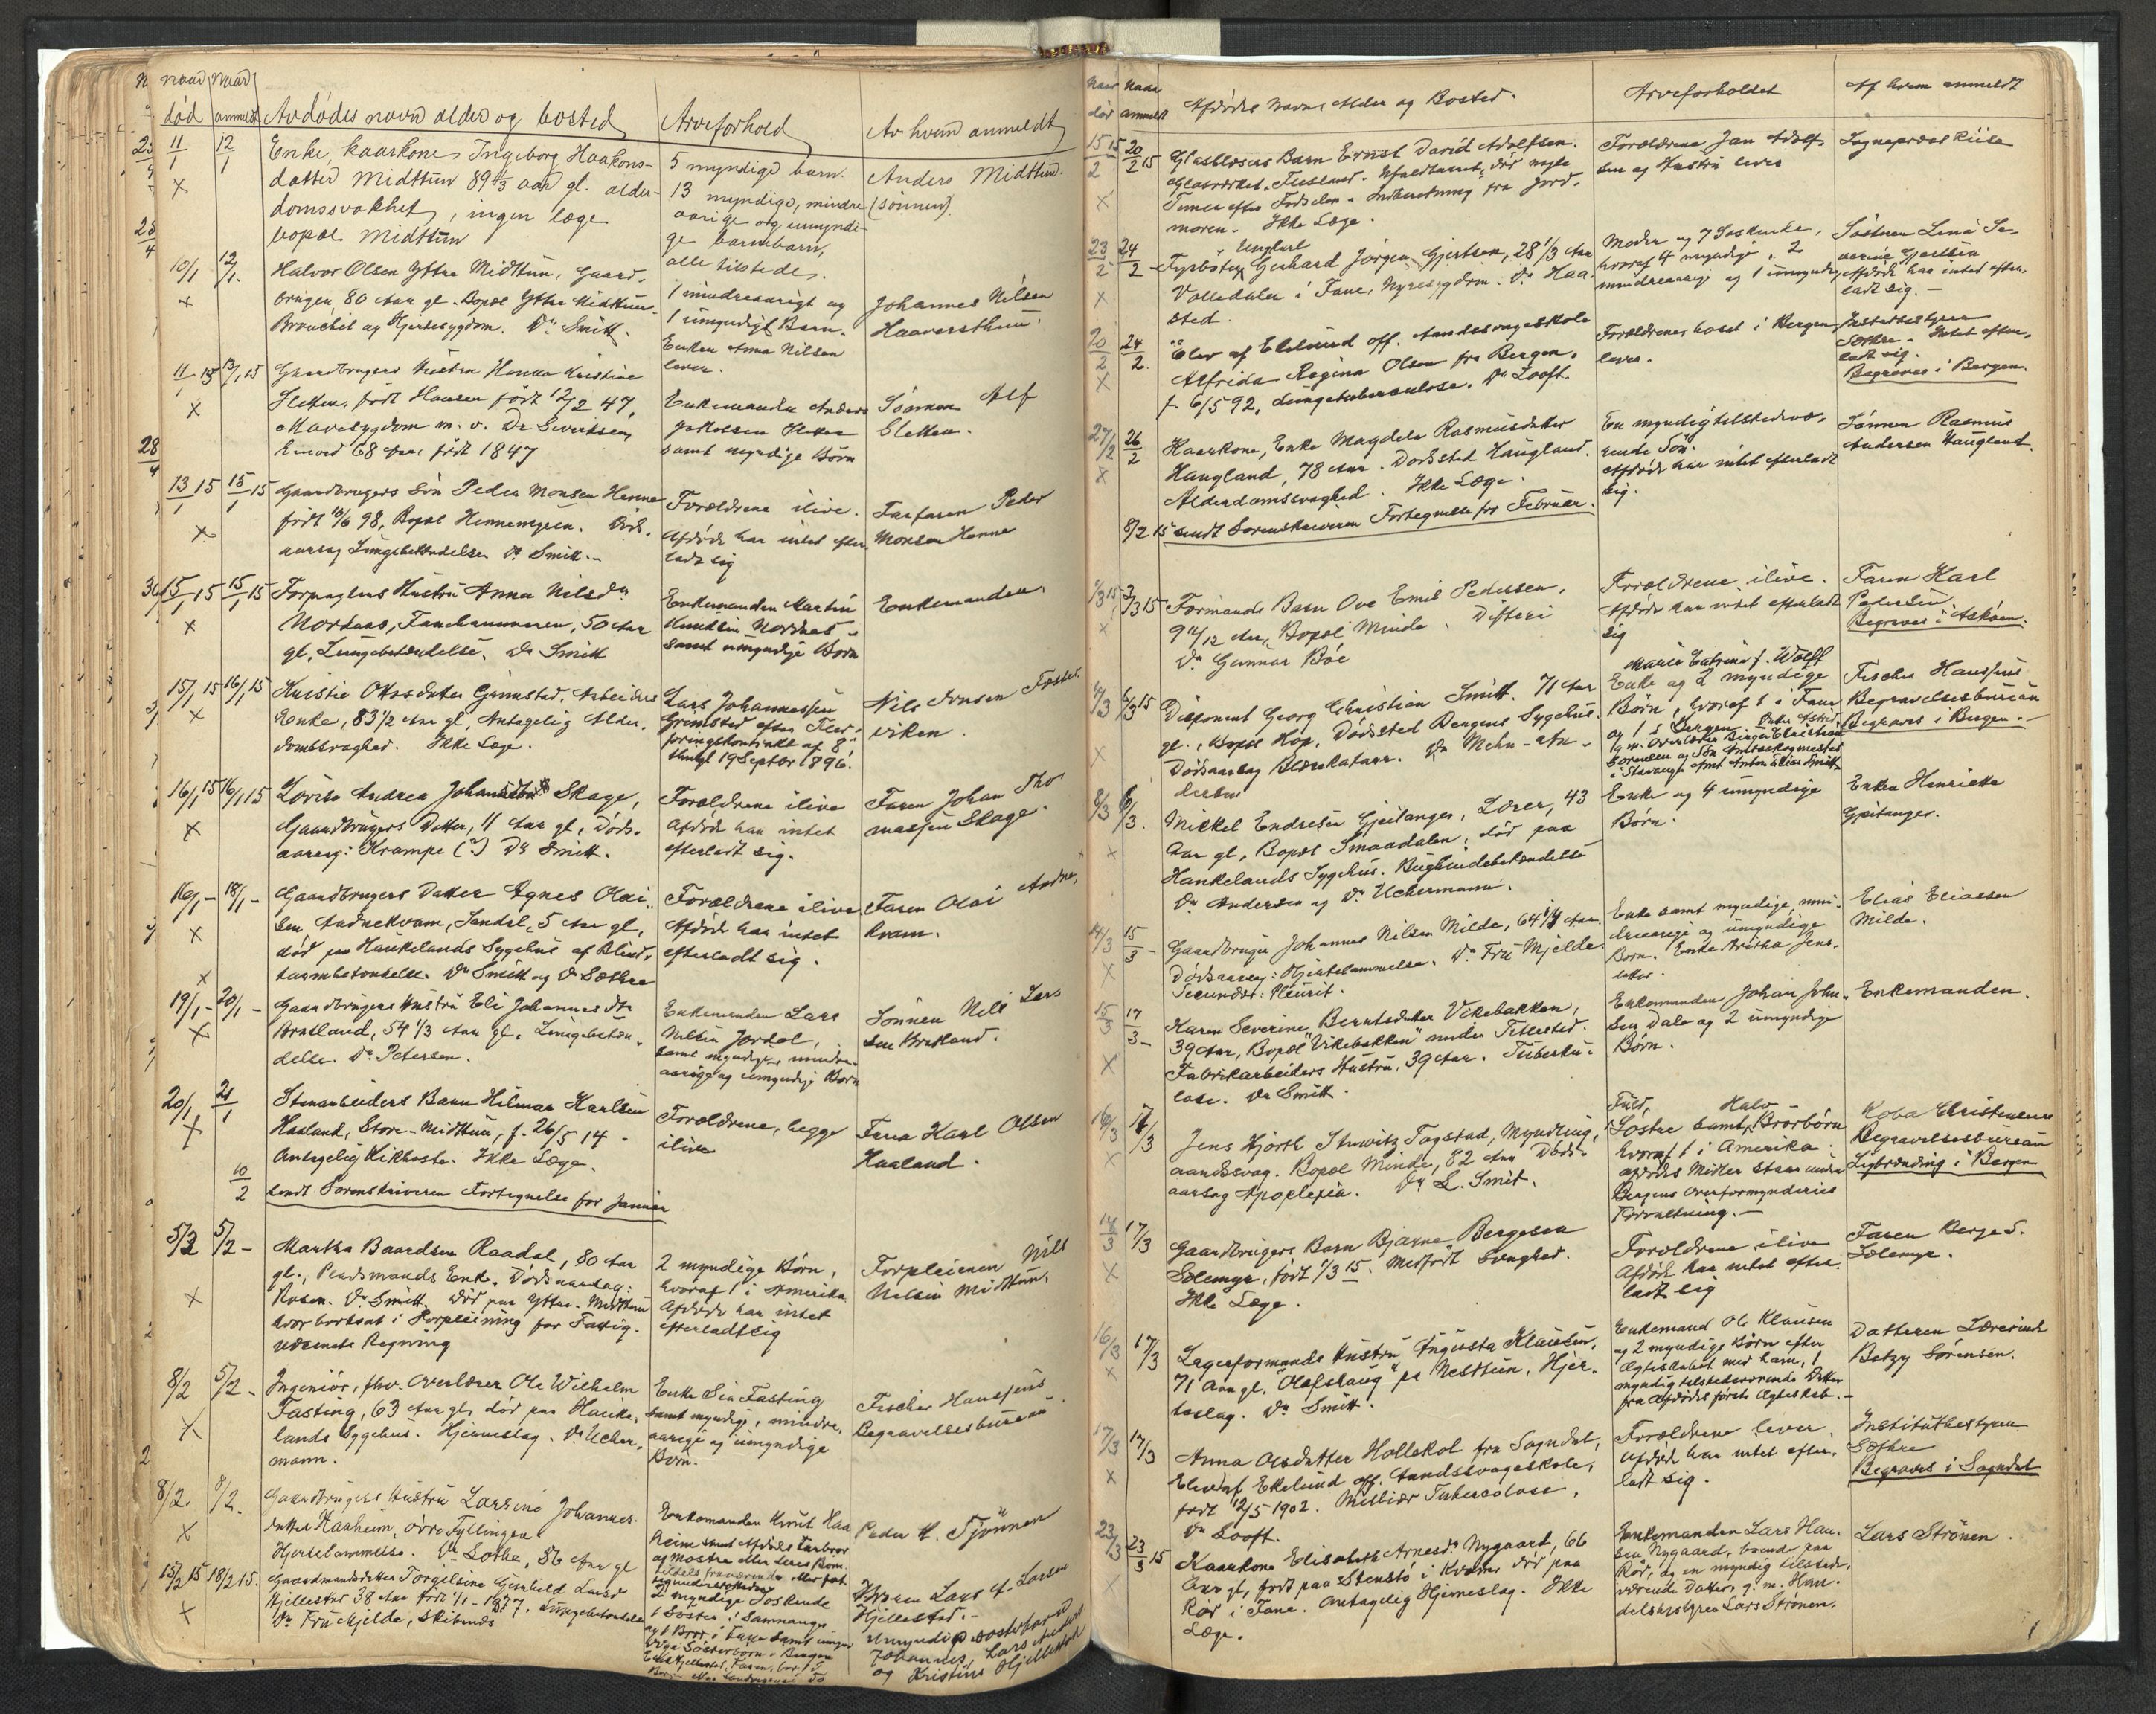 naar naar
død anmeldt Avdødes navn alder og bosted Arveforhold Av hvem anmeldt
11/1 12/1 Enke, kaarkone Ingeborg Haakons-
datter Midttun 89 1/3 aar gl. alder-
domssvakhet, ingen læge
bopæl Midttun
5 myndige barn.
13 myndige, mindre
aarige og umyndi-
ge barnebarn,
alle tilstede.
Anders Midttun
(sønnen).
10/1 12/1. Halvor Olsen Ytre Midttun, Gaard-
bruger, 80 Aar gl. Bopæl Ytre Midttun.
Bronchit og Hjertesygdom. Dr Smitt.
1 mindreaarigt og
1 umyndigt Barn.
Enken Anna Nilsen
lever.
Johannes Nilsen
11/1 15 13/1 15 Gaardbrugers Hustru Hanna Kristine
Sletten, født Hansen født 12/2 47,
Mavesygdom m. v. Dr Sivertsen
68 Aar, født 1847
Enkemanden Anders
Jakobsen Sletten
samt myndige Børn
Sønnen Alf
Sletten.
13/1 15 15/1 15 Gaardbrugers Søn Peder Monsen Henne
født 10/6 98, Bopæl Hennemyren. Døds-
aarsag Lungebetændelse Dr Smitt.-
Forældrene ilive.
Afdøde har intet efter-
ladt sig
Farfaren Peder
Monsen Henne
15/1 15 15/1 15 Forpagters Hustru Anna Nilsdr
Nordaas, Fanehammeren, 50 Aar
gl, Lungebetændelse. Dr Smitt
Enkemanden Martin
Knudsen Nordaas
samt umyndige Børn
Enkemanden.
15/1 15 16/1 15 Kristie Olsdatter Grimstad, Arbeiders
Enke, 83 1/2 Aar gl, Antagelig Alder-
domssvaghed. Ikke Læge.
Lars Johannessen
Grimstad efter Flet-
føringskontrakt af 8'
thingl 19 Septbr 1896.
Nils Ivarsen
viken.
16/1 15 16/1 15 Lovise Andrea Johannesen Skage,
Gaardbrugers Datter, 11 Aar gl, Døds-
aarsag: Krampe (?) Dr Smitt.
Forældrene ilive
Afdøde har intet
efterladt sig.
Faren Johan Tho-
massen Skage.
16/1 - 18/1 - Gaardbrugers Datter Agnes Olai-
sen Aadnekvam, Sandal, 5 Aar gl,
død paa Haukelands Sygehus af Blind-
tarmbetændelse. Dr Smitt og Dr Sæthre
Forældrene ilive
Afdøde har intet
efterladt sig.
Faren Olai Aadne-
kvam.
19/1 - 20/1 - Gaardbrugers Hustru Eli Johannesdtr
Bratland, 54 1/3 Aar gl. Lungebetæn-
delse. Dr. Petersen.
Enkemanden Lars
Nilsen Jordal,
samt myndige, mindre-
aarige og umyndige Børn
Sønnen Nils Lar-
sen Bratland.
20/1 21/1 Stenarbeiders Barn Hilmar Karlsen
Haaland, Store-Midttun, f. 26/5 14.
Antagelig Kikhoste. Ikke Læge.
Forældrene, begge
ilive
Faren Karl Olsen
Haaland.
10/2 sendt Sorenskriveren Fortegnelse for Januar
5/2 5/2 - Martha Baardsen Raadal, 80 Aar
gl., Enke, Dødsaarsag:
Rosen. Dr Smitt. Død paa Yttre-Midttun
hvor bortsat i Forpleining for Fattig-
væsenets Regning
2 myndige Børn,
hvoraf 1 i Amerika
Afdøde har intet
efterladt sig
Forpleieren Nils
Nilsen Midttun.
8/2 5/2 - Ingeniør, fhv. Overlærer Ole Wilhelm
Fasting, 63 Aar gl, død paa Hauke-
lands Sygehus. Hjerneslag. Dr Ucher-
mann.
Enke Sia Fasting
samt myndige, mindre-
aarige og umyndige
Børn.
Fischer Hanssens
Begravelsesbureau.
8/2. 8/2. Gaardbrugers Hustru Larsine Johannes-
datter Haaheim, øvre Fyllingen
Hjertelammelse. Dr Lothe, 56 Aar gl
Enkemanden Knut Haa-
heim samt Afdødes Farbror
og Mostre eller deres Børn
Peder K. Tjønnen
15/2 15 18/2 15. Gaardmandsdatter Torgelsine Gunhild Larsd
Hjellestad 38 Aar født 1/1-1877. Lungebetændelse
Dr Fru Mjelde, Skibsnæs
2 myndige Søskende
1 Søster i Samnanger
og 1 Bror i Fane samt umyn-
dige Søsterbørn i Bergen
Broren Lars L. Larsen
Hjellestad.-
Umyndige søsterbarn
Johannes, Lars Andreas
og Kristine Hjellestad
Naar Naar
død anmeldt Afdødes Navn, Alder og Bosted. Arveforholdet Af hvem anmeldt
15/2 15 20/2 15 Glasblæsers Barn Ernst David Adolfsen.
Glasværket, Fusland.
Timer efter Fødselen. Indberetning fra Jord-
moren. Ikke Læge.
Forældrene Jan Adolf-
sen og Hustru lever
Sogneprest Riile
23/2 24/2 - Ungkarl
Fyrbøter Gerhard Jørgen Gjertsen, 28 1/3 Aar
Valledalen i Fane, Nyresygdom. Dr Haa-
sted.
Moder og 7 Søskende,
hvoraf 4 myndige, 2
mindreaarig og 1 umyndig
Søsteren Lina Se-
verine Gjertsen
Afdøde har intet efter-
ladt sig.-
20/2 24/2. Elev af Ekelund off. Aandssvageskole
Alfrida Regina Olsen fra Bergen,
f. 6/5 92, Lungetuberculose. Dr Looft.
Forældrene, bosat i Bergen,
lever.
Institutbestyrer
Sæthre. Intet efter-
ladt sig.
Begraves i Bergen.
27/2 26/2 Kaarkone, Enke Magdela Rasmusdatter
Haugland, 78 Aar. Dødssted Haugland.
Alderdomssvaghed. Ikke Læge.
En myndig tilstedevæ-
rende Søn.
Afdøde har intet efterladt
sig.
Sønnen Rasmus
Andersen Haugland.
8/2 15 sendt Sorenskriveren Fortegnelse for Februar.
1/3 15 3/3 15 Formands Barn Ove Emil Pedersen,
9 11/12 Aar, Bopæl Minde. Difteri
Dr Gunnar Bøe
Forældrene ilive.
Afdøde har intet efterladt
sig
Faren Karl
Pedersen
Begraves i Askøen.
4/3 6/3 15 Disponent Georg Christian Smitt. 71 Aar
gl., Bopæl Hop. Dødssted Bergens Sygehus.
Dødsaarsag Blærekatarr. Dr Mehn-An-
dersen
Maria Catrine f. Wolff
Enke og 2 myndige
Børn, hvoraf 1 i Fane
og 1 i Bergen.
Fischer Hanssens
Begravelsesbureau
Begraves i Bergen.-
8/3 6/3. Mikkel Endresen Gjeitanger, Lærer, 43
Aar gl, Bopæl Smaadalen, død paa
Haukelands Sygehus. Bughindebetændelse
Dr Andersen og Dr Uchermann.
Enke og 4 umyndige
Børn.
Enken Henriette
Gjeitanger.
14/3 15/3 - Gaardbruger Johannes Nilsen Milde, 64 1/4 Aar.
Dødsaarsag: Hjertelammelse. Dr Fru Mjelde.
Secundær: Pleurit.
Enke samt myndige, min-
dreaarige og umyndige
Børn. Enke Britha Jens-
datter.
Elias Eliassen
Milde.
15/3 17/3 - Karen Severine Berntsdatter Vikebakken,
39 Aar, Bopæl "Vikebakken" under Titlestad.
Fabrikarbeiders Hustru, 39 Aar. Tuberku-
lose. Dr Smitt.
Enkemanden Johan Johan-
sen Dale og 2 umyndige
Børn.
Enkemanden.
16/3 17/3 Jens Hjorth Stuwitz Fagstad, Myndling,
aandssvag. Bopæl Minde, 82 Aar Døds-
aarsag Apoplexia. Dr L. Smit.
Fuld, Halv-
Søstre samt Brorbørn
hvoraf 1 i Amerika.
Afdødes Midler staar under
Bergens Overformynderies
Forvaltning.-
Koba Christensens
Begravelsesbureau
Ligbrænding i Bergen
14/3 17/3 Gaardbrugers Barn Bjarne Bergesen
Sælemyr, født 1/3 15. Medfødt Svaghed.
Ikke Læge.
Forældrene ilive
Afdøde har intet efter-
ladt sig
Faren Berge S.
Sælemyr.
16/3 17/3 Lagerformands Hustru Augusta Klausen,
71 Aar gl. "Olafshaug" pr Nesttun, Hjer-
teslag. Dr Smitt.
Enkemand Ole Klausen
og 2 myndige Børn efter
Ægteskabet med ham, 1
myndig tilstedeværende Datter
fra Afdødes første Ægteskab.-
Datteren Lærerinde
Betzy Sørensen.
17/3 17/3 Anna Olsdatter Hollekol fra Sogndal,
Elev af Ekelund off. Aandssvageskole,
født 12/5 1902. Milliær Tuberculose.
Dr Looft.
Forældrene lever.
Afdøde har intet efter-
ladt sig.
Institutbestyrer
Sæthre
Begraves i Sogndal
23/3 23/3 15 Kaarkone Elisabeth Arnesdr Nygaard, 66
Aar gl, født paa Stenstø i Kvam, død paa
Rør i Fane. Antagelig Hjerneslag. Ikke
Læge.
Enkemanden Lars Han-
sen Nygaard, boende paa
Rør, og en myndig tilstede-
værende Datter, g. m. Han-
delsbestyrer Lars Strønen.
Lars Strønen.